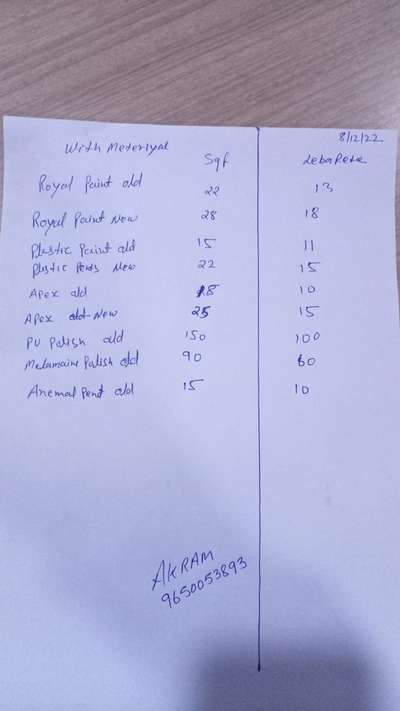 8/12/22
With Meteriyal Sqf Leba Rete
Royal Paint old 22 13
Royal Paint New 28 18
Plastic Paint old 15 11
Plastic Pents New 22 15
Apex old 18 10
Apex old New 25 15
PU Palish old 150 100
Melamaine Palish old 90 60
Anemal Pent old 15 10
AKRAM
9650053893